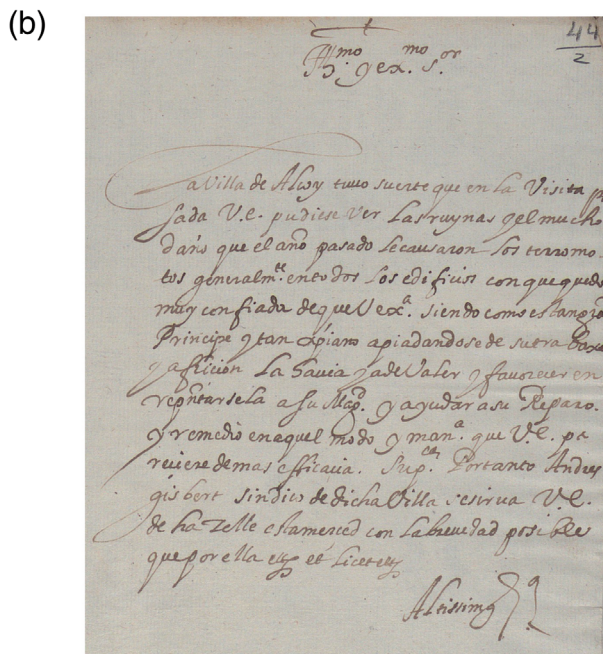 (b)
44
2
Ill.mo y ex.mo s.or
La Villa de Alcoy tuuo suerte que en la Visita pa
sada V.e. pudiese Ver Las ruynas y el mucho
daño que el año pasado le causaron Los terremo
tos generalm.te en todos Los edificios con que quedo
muy confiada de que V ex.a siendo como es tan gra
Principe y tan xpiano apiadandose de su trabaxo
y afficion La hauia de Valer y fauorecer en
repntarsela a su Mag.d y ayudar a su Reparo
y remedio en aquel modo y man.a que V.e. pa
reciere de mas efficacia. Sup.ca Portanto Andres
gisbert sindico de dicha Villa se sirua V.e.
de hazelle esta merced con La breuedad posible
que por ella etc et Licet etc
Altissimus